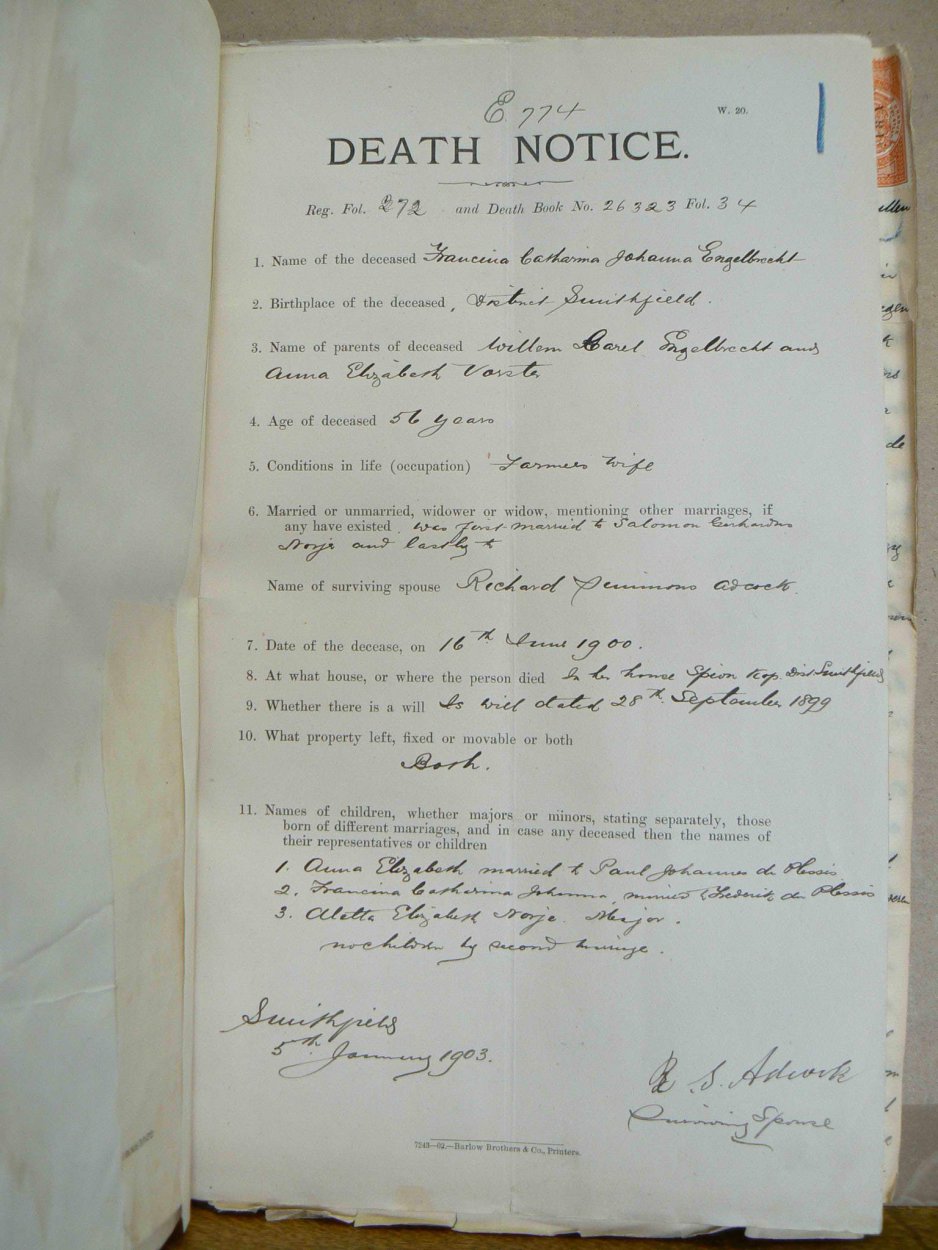 E. 774
W. 20.
DEATH NOTICE.
Reg. Fol. 272 and Death Book No. 26323 Fol. 34
1. Name of the deceased Francina Catharina Johanna Engelbrecht
2. Birthplace of the deceased, District Smithfield.
3. Name of parents of deceased Willem Carel Engelbrecht and
Anna Elizabeth Vorster
4. Age of deceased 56 years
5. Conditions in life (occupation) Farmers Wife
6. Married or unmarried, widower or widow, mentioning other marriages, if
any have existed was first married to Salomon Gerhardus
Norje and lastly to
Name of surviving spouse Richard Simmons Adcock.
7. Date of the decease, on 16th June 1900.
8. At what house, or where the person died In her house Spion Kop. Dist Smithfield
9. Whether there is a will Is will dated 28th September 1899
10. What property left, fixed or movable or both
Both.
11. Names of children, whether majors or minors, stating separately, those
born of different marriages, and in case any deceased then the names of
their representatives or children
1. Anna Elizabeth married to Paul Johannes du Plessis
2. Francina Catharina Johanna, married to Frederik du Plessis
3. Aletta Elizabeth Norje. Major.
no children by second marriage.
Smithfield
5th January 1903.
R S. Adcock
Surviving Spouse
7243—02.—Barlow Brothers & Co., Printers.